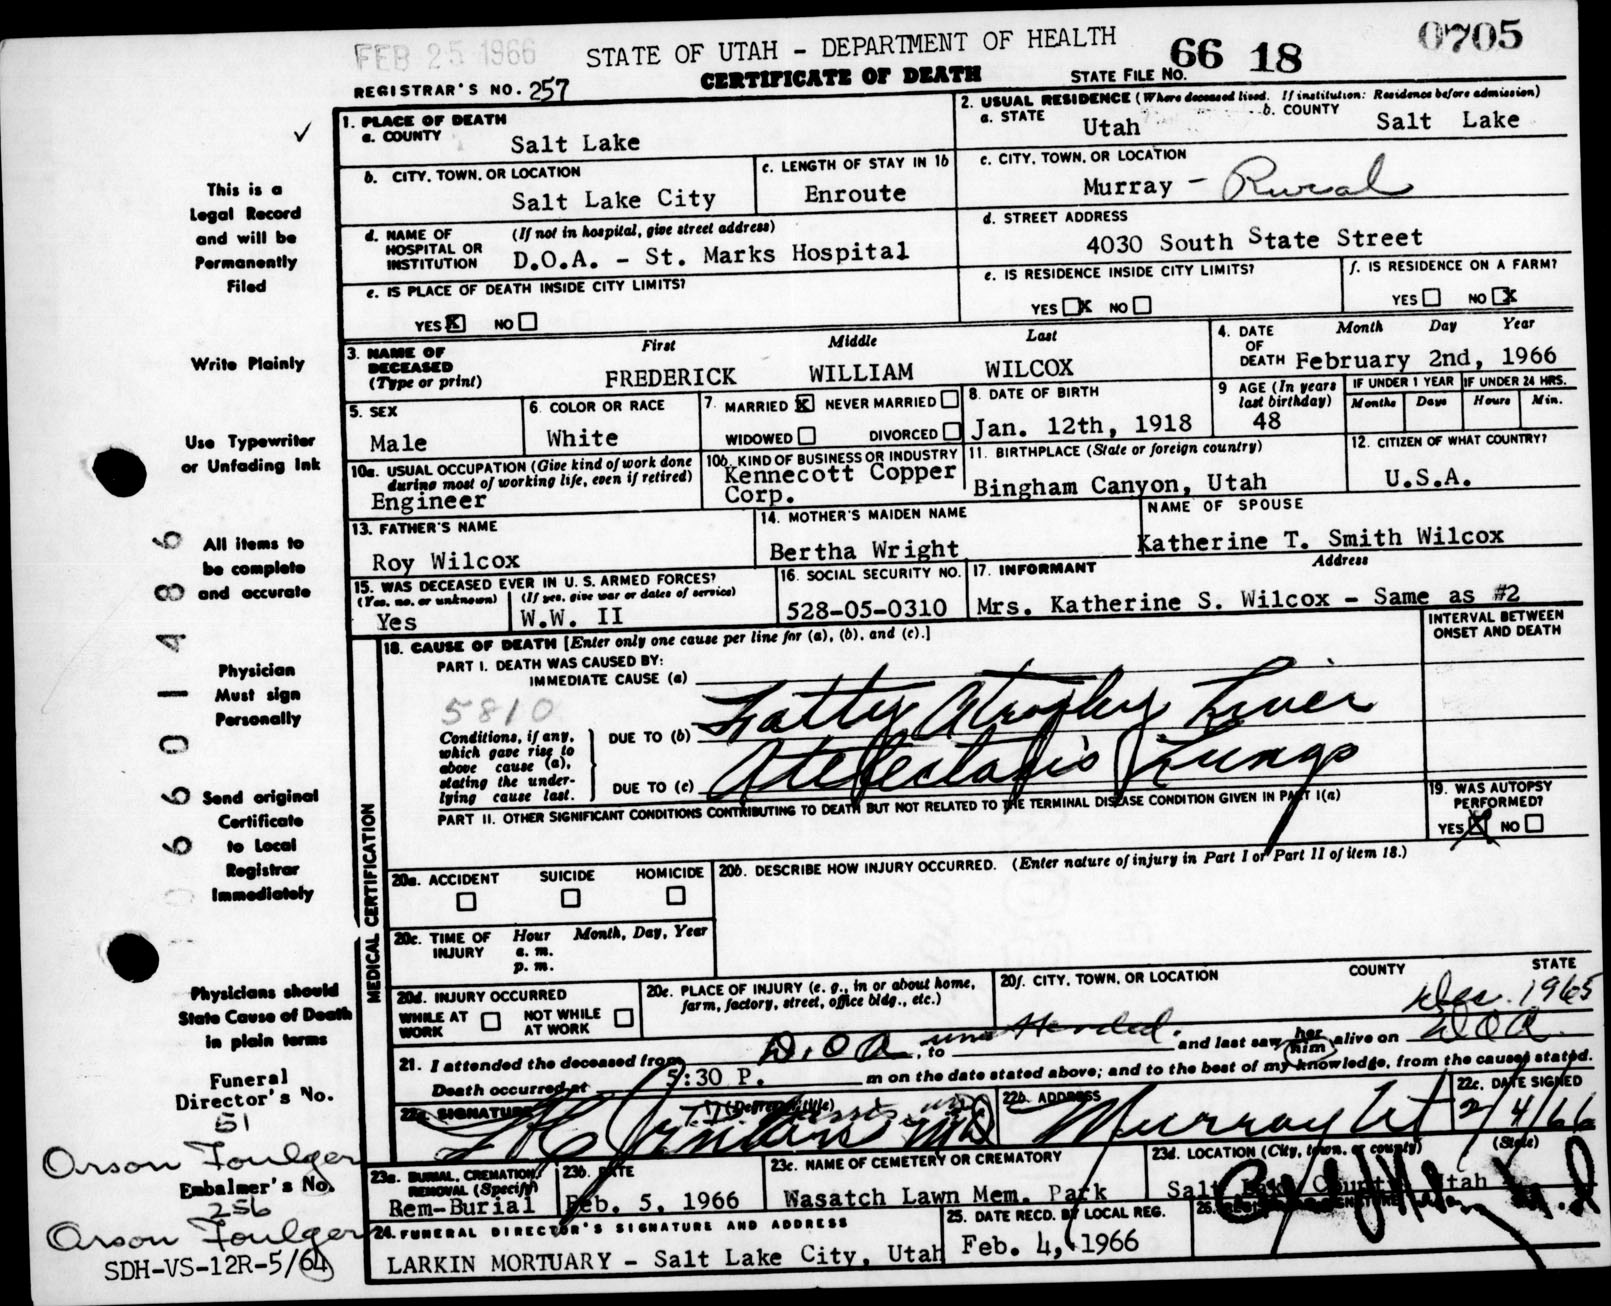 FEB 25 1966
STATE OF UTAH - DEPARTMENT OF HEALTH
66 18
0705
CERTIFICATE OF DEATH
STATE FILE NO.
REGISTRAR'S NO. 257
1. PLACE OF DEATH
a. COUNTY
Salt Lake
2. USUAL RESIDENCE (Where deceased lived. If institution: Residence before admission)
a. STATE
Utah
b. COUNTY
Salt Lake
b. CITY, TOWN, OR LOCATION
Salt Lake City
c. LENGTH OF STAY IN 1b
Enroute
c. CITY, TOWN, OR LOCATION
Murray - Rural
d. NAME OF HOSPITAL OR INSTITUTION
(If not in hospital, give street address)
D.O.A. - St. Marks Hospital
d. STREET ADDRESS
4030 South State Street
e. IS PLACE OF DEATH INSIDE CITY LIMITS?
YES X NO
e. IS RESIDENCE INSIDE CITY LIMITS?
YES X NO
f. IS RESIDENCE ON A FARM?
YES NO X
3. NAME OF DECEASED
(Type or print)
First Middle Last
FREDERICK WILLIAM WILCOX
4. DATE OF DEATH
Month Day Year
February 2nd, 1966
5. SEX
Male
6. COLOR OR RACE
White
7. MARRIED X NEVER MARRIED
WIDOWED DIVORCED
8. DATE OF BIRTH
Jan. 12th, 1918
9 AGE (In years last birthday)
48
IF UNDER 1 YEAR
Months Days
IF UNDER 24 HRS.
Hours Min.
10a. USUAL OCCUPATION (Give kind of work done during most of working life, even if retired)
Engineer
10b. KIND OF BUSINESS OR INDUSTRY
Kennecott Copper
Corp.
11. BIRTHPLACE (State or foreign country)
Bingham Canyon, Utah
12. CITIZEN OF WHAT COUNTRY?
U.S.A.
13. FATHER'S NAME
Roy Wilcox
14. MOTHER'S MAIDEN NAME
Bertha Wright
NAME OF SPOUSE
Katherine T. Smith Wilcox
15. WAS DECEASED EVER IN U. S. ARMED FORCES?
(Yes, no, or unknown)
(If yes, give war or dates of service)
Yes
W.W. II
16. SOCIAL SECURITY NO.
528-05-0310
17. INFORMANT
Address
Mrs. Katherine S. Wilcox - Same as #2
MEDICAL CERTIFICATION
18. CAUSE OF DEATH [Enter only one cause per line for (a), (b), and (c).]
INTERVAL BETWEEN ONSET AND DEATH
PART I. DEATH WAS CAUSED BY:
IMMEDIATE CAUSE (a)
5810
Fatty Atrophy Liver
Conditions, if any, which gave rise to above cause (a), stating the underlying cause last.
DUE TO (b)
Atelectasis Lungs
DUE TO (c)
PART II. OTHER SIGNIFICANT CONDITIONS CONTRIBUTING TO DEATH BUT NOT RELATED TO THE TERMINAL DISEASE CONDITION GIVEN IN PART I(a)
19. WAS AUTOPSY PERFORMED?
YES X NO
20a. ACCIDENT SUICIDE HOMICIDE
20b. DESCRIBE HOW INJURY OCCURRED. (Enter nature of injury in Part I or Part II of item 18.)
20c. TIME OF INJURY
Hour Month, Day, Year
a. m.
p. m.
20d. INJURY OCCURRED
WHILE AT WORK NOT WHILE AT WORK
20e. PLACE OF INJURY (e. g., in or about home, farm, factory, street, office bldg., etc.)
20f. CITY, TOWN, OR LOCATION COUNTY STATE
Dec. 1965
21. I attended the deceased from D.O.A., to unattended. and last saw her him alive on DOA
Death occurred at 5:30 P. m on the date stated above; and to the best of my knowledge, from the causes stated.
22a. SIGNATURE
(Degree or title)
MD
22b. ADDRESS
Murray Ut
22c. DATE SIGNED
2/4/66
23a. BURIAL, CREMATION, REMOVAL (Specify)
Rem-Burial
23b. DATE
Feb. 5, 1966
23c. NAME OF CEMETERY OR CREMATORY
Wasatch Lawn Mem. Park
23d. LOCATION (City, town, or county) (State)
Salt Lake County Utah
24. FUNERAL DIRECTOR'S SIGNATURE AND ADDRESS
LARKIN MORTUARY - Salt Lake City, Utah
25. DATE RECD. BY LOCAL REG.
Feb. 4, 1966
26.
This is a
Legal Record
and will be
Permanently
Filed
Write Plainly
Use Typewriter
or Unfading Ink
All items to
be complete
and accurate
Physician
Must sign
Personally
Send original
Certificate
to Local
Registrar
Immediately
Physicians should
State Cause of Death
in plain terms
Funeral
Director's No.
51
Orson Foulger
Embalmer's No.
256
Orson Foulger
SDH-VS-12R-5/64